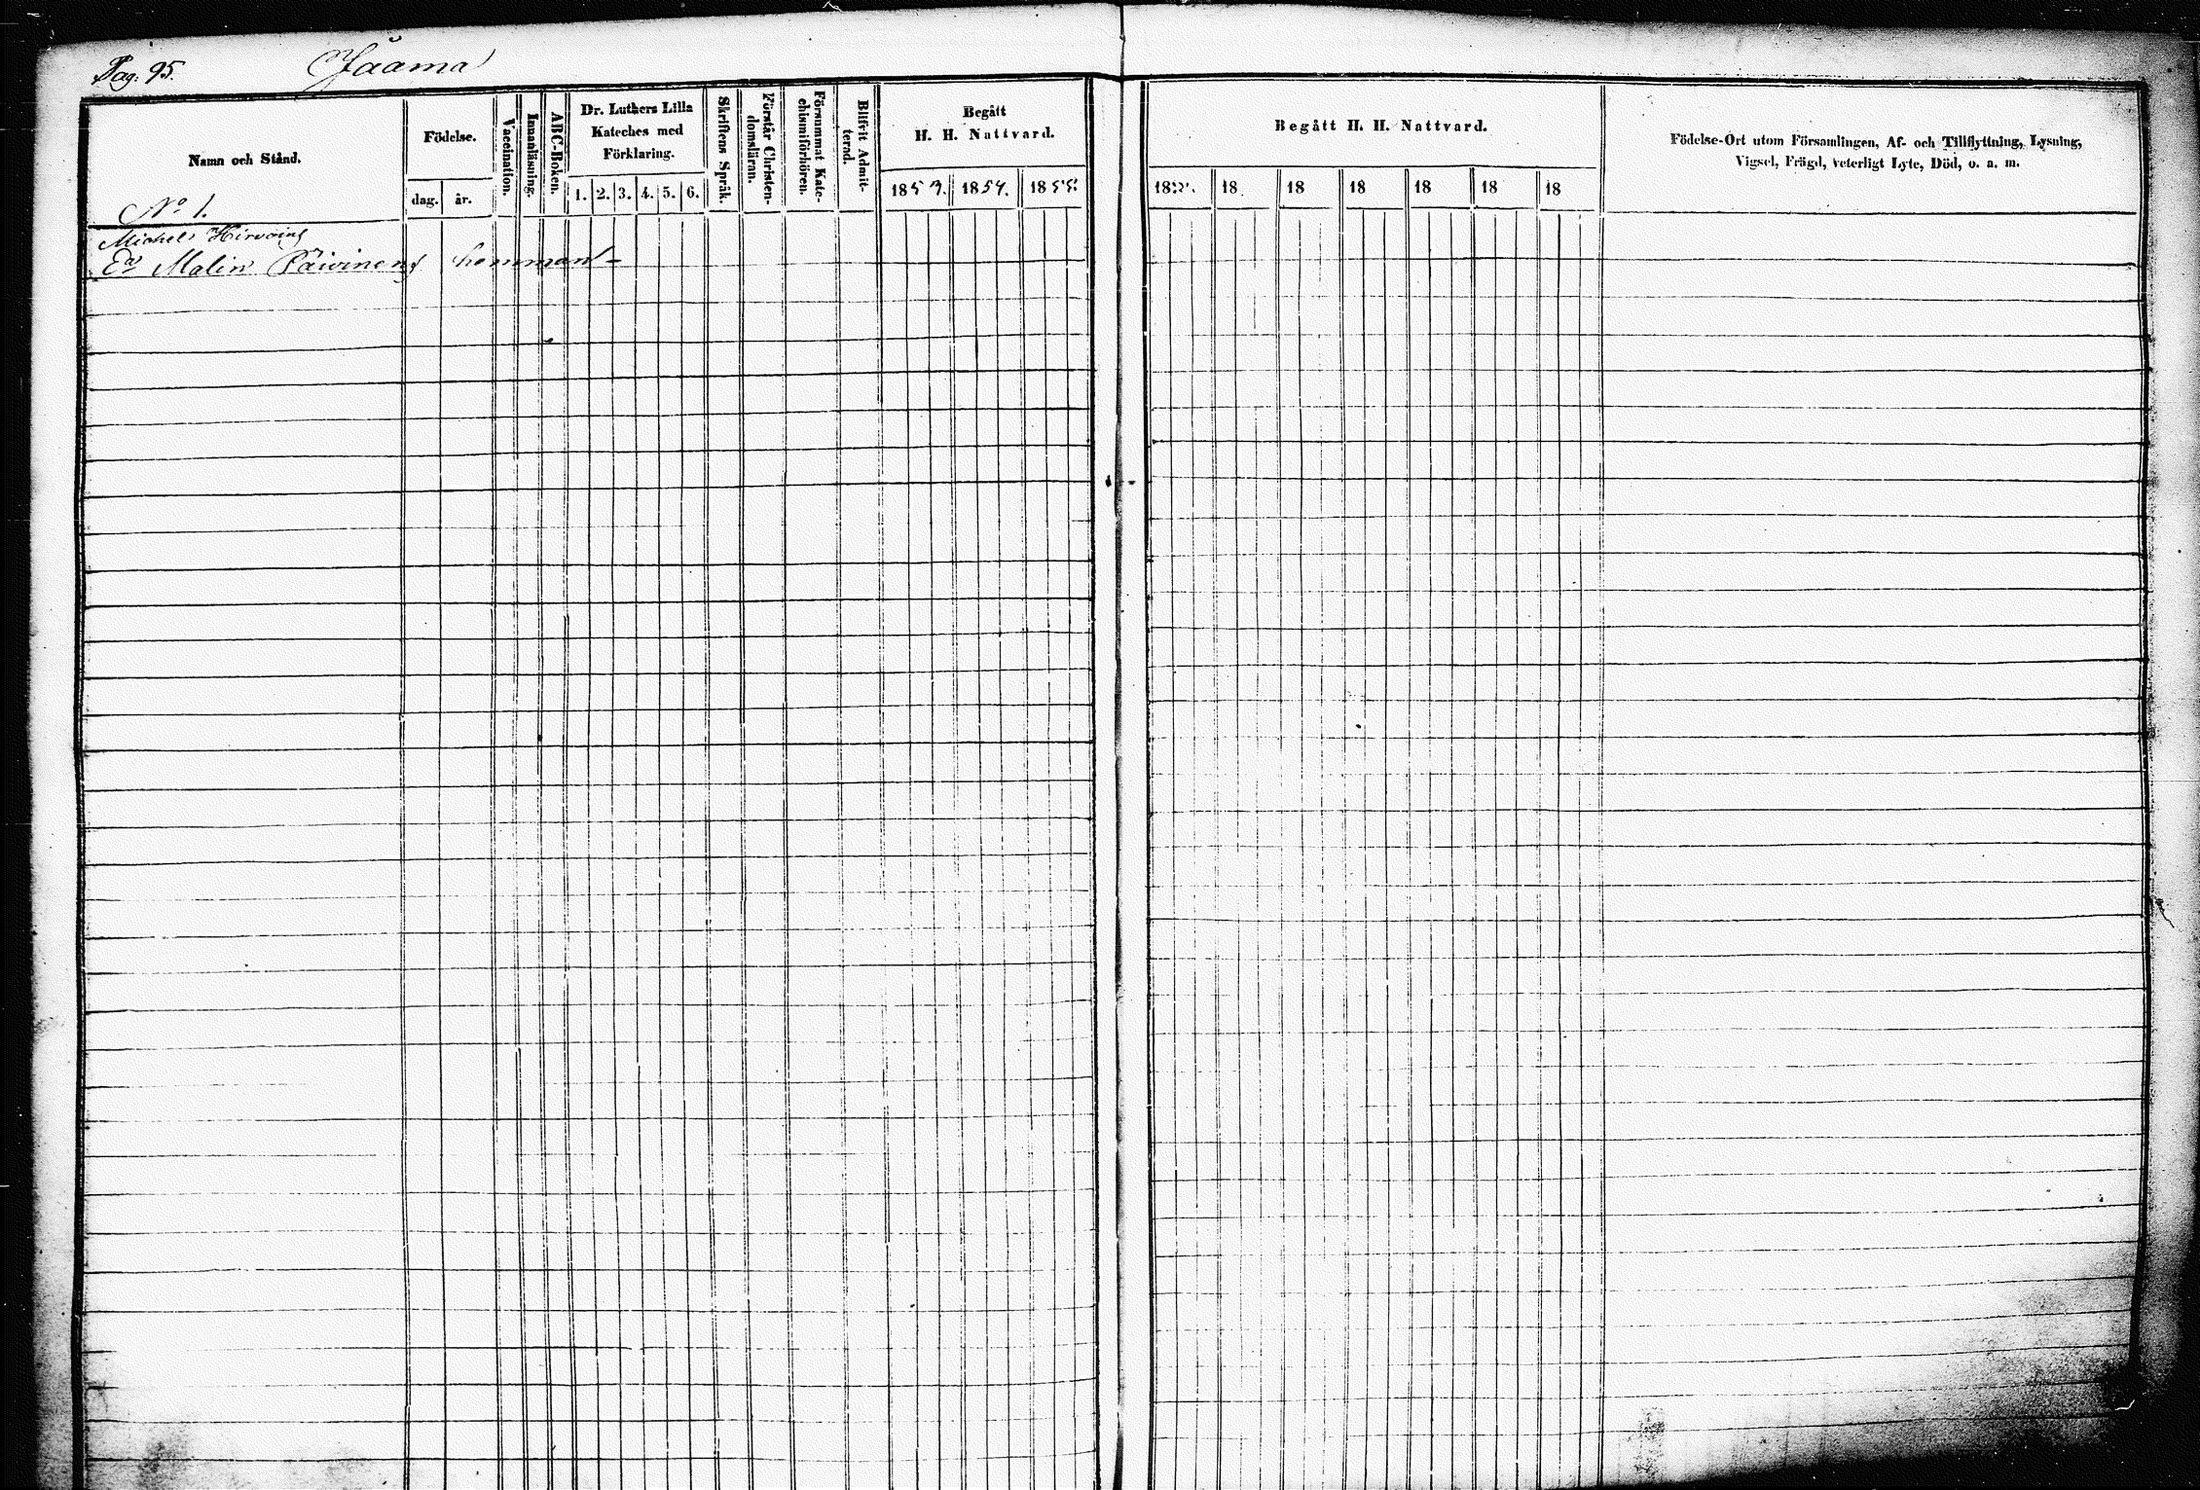 Pag. 95.
Jaama
Namn och Stånd.
Födelse.
dag. år.
Vaccination.
Innanläsning.
ABC-Boken.
Dr. Luthers Lilla
Kateches med
Förklaring.
1. 2. 3. 4. 5. 6.
Skriftens Språk.
Förstår Christen-
domsläran.
Försummat Kate-
chismiförhören.
Blifvit Admit-
terad.
Begått
H. H. Nattvard.
1853. 1854. 1855.
Begått H. H. Nattvard.
18 18 18 18 18 18 18
Födelse-Ort utom Församlingen, Af- och Tillflyttning, Lysning,
Vigsel, Frägd, veterligt Lyte, Död, o. a. m.
No 1.
Michel Hirvoins
Ea Malin Päivinens hemman